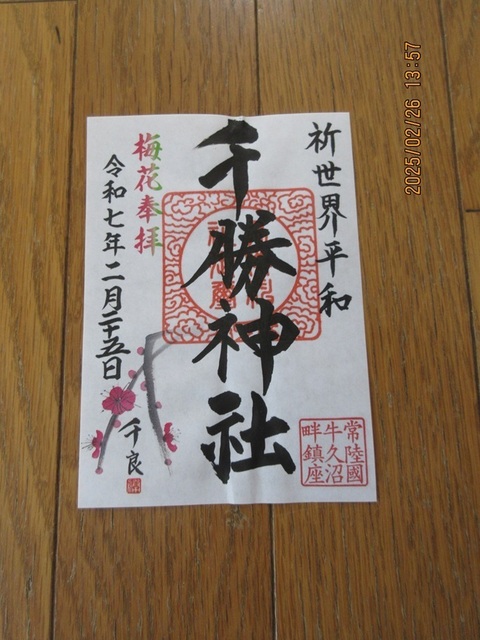 祈世界平和
千勝神社
梅花奉拝
令和七年二月二十五日
千良
常陸國
牛久沼
畔鎮座
2025/02/26 13:57